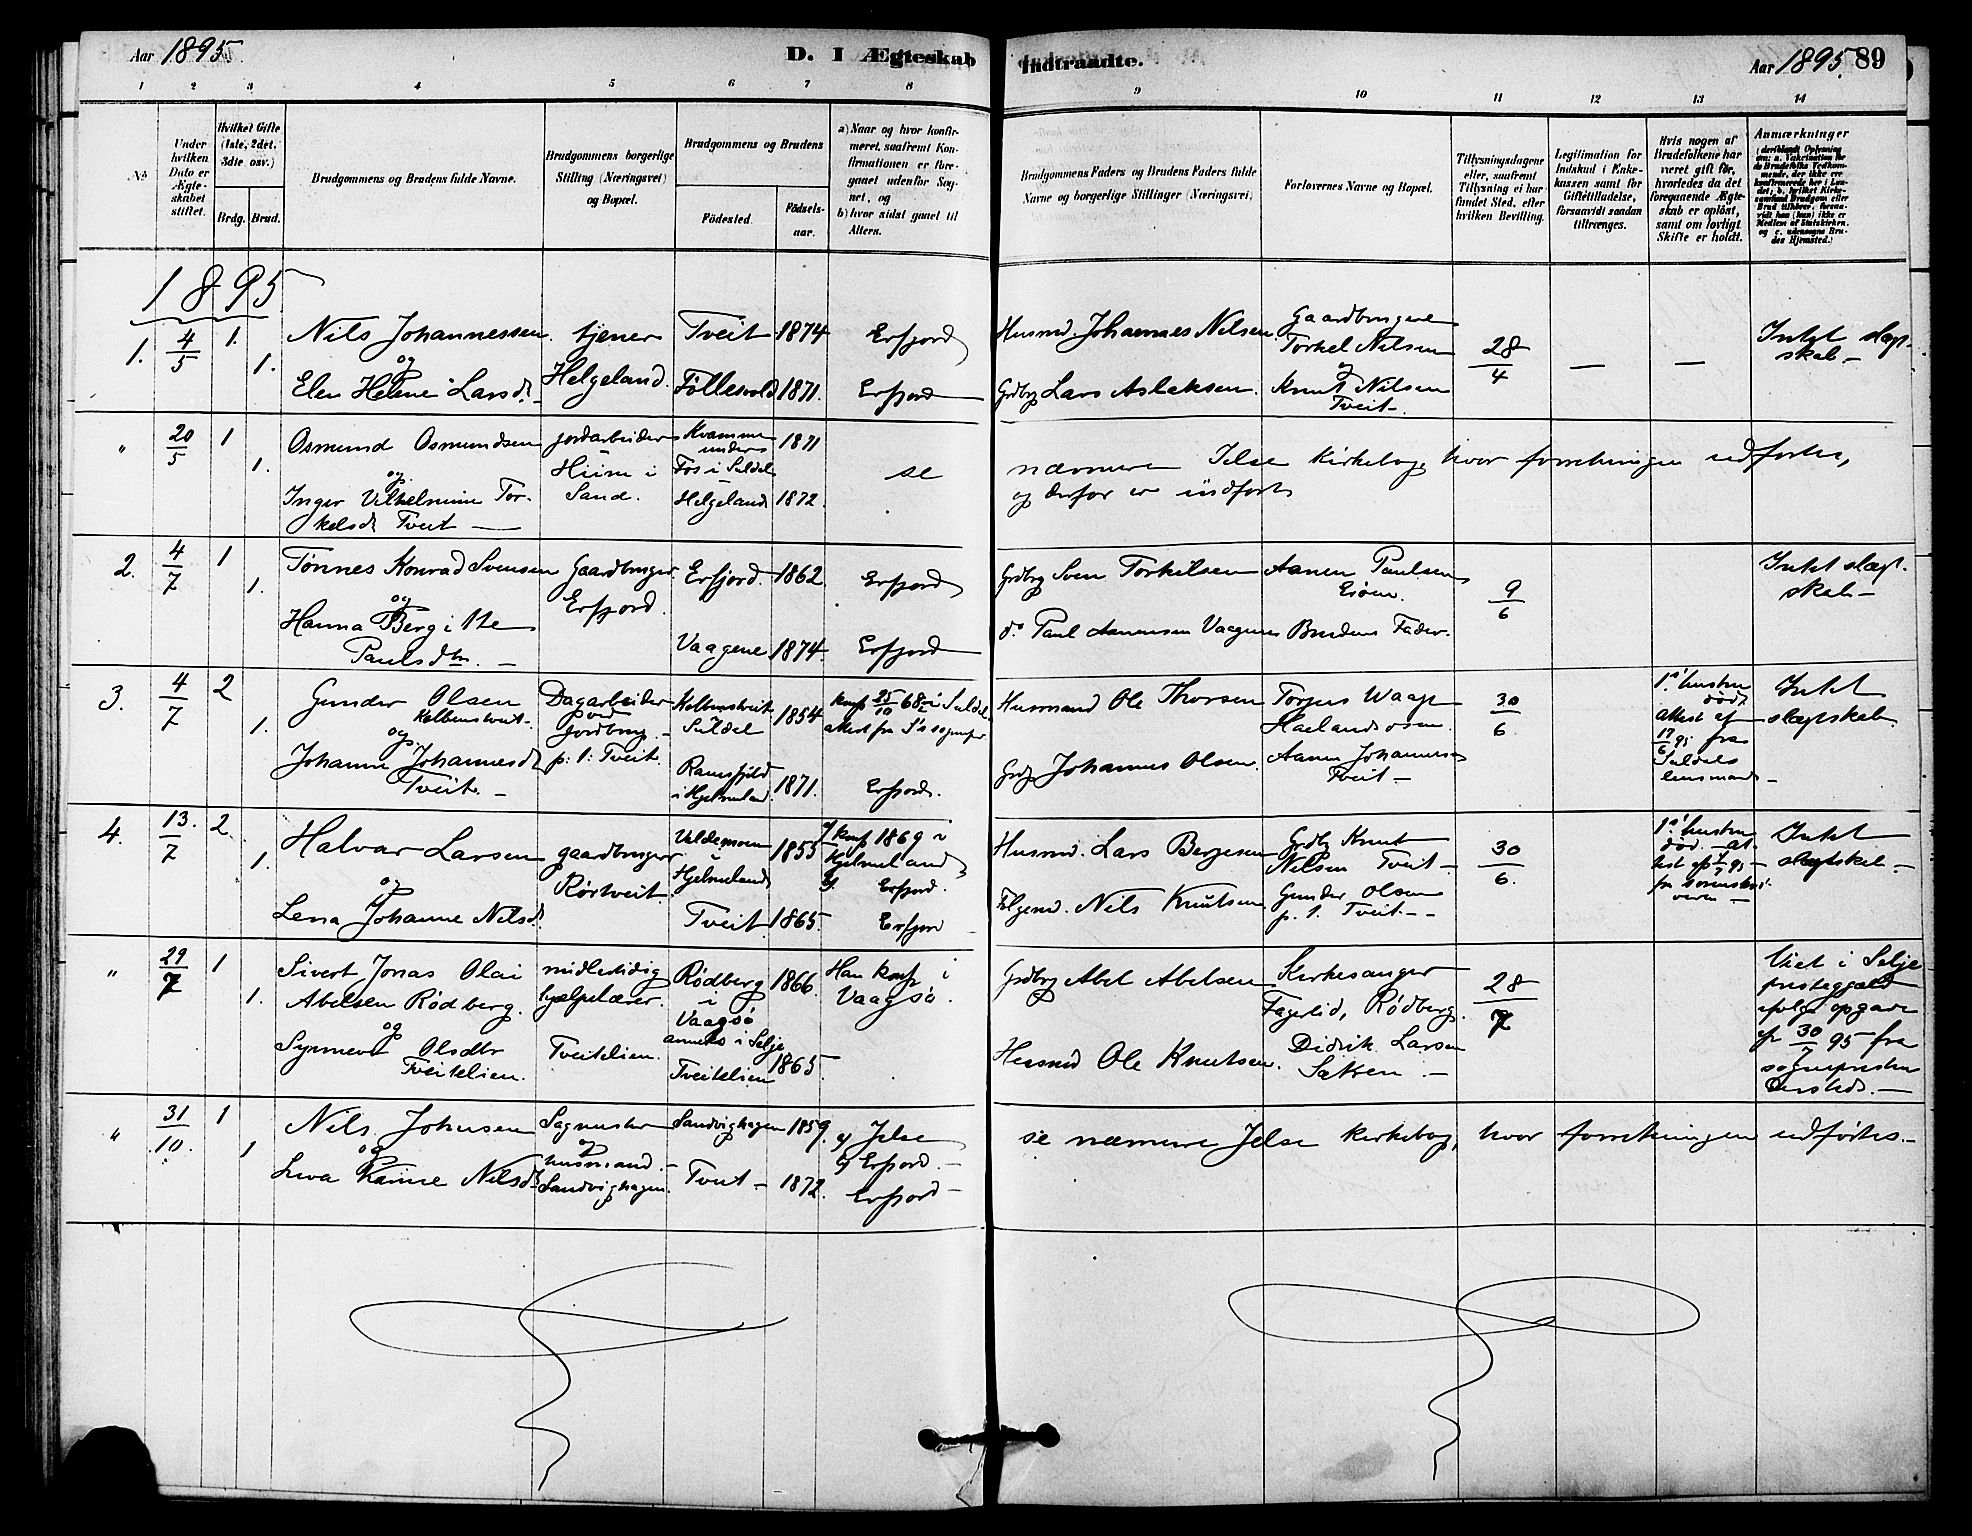 Aar 1895.
D. I Ægteskab
Indtraadte.
Aar 1895. 89
1 2 3 4 5 6 7 8
9 10 11 12 13 14
No
Under
hvilken
Dato er
Ægte-
skabet
stiftet.
Hvilket Gifte
(1ste, 2det,
3dte osv.)
Brdg. Brud.
Brudgommens og Brudens fulde Navne.
Brudgommens borgerlige
Stilling (Næringsvei)
og Bopæl.
Brudgommens og Brudens
Födested.
Födsels-
aar.
a) Naar og hvor konfir-
meret, saafremt Kon-
firmationen er fore-
gaaet udenfor Sog-
net, og
b) hvor sidst gaaet til
Alters.
Brudgommens Faders og Brudens Faders fulde
Navne og borgerlige Stillinger (Næringsvei).
Forlovernes Navne og Bopæl.
Tillysningsdagene
eller, saafremt
Tillysning ei har
fundet Sted, efter
hvilken Bevilling.
Legitimation for
Indskud i Enke-
kassen samt for
Giftetilladelse,
forsaavidt saadan
tiltrænges.
Hvis nogen af
Brudefolkene har
været gift før,
hvorledes da det
foregaaende Ægte-
skab er oplöst,
samt om lovligt
Skifte er holdt.
Anmærkninger
1895
1. 4/5 1. 1.
Nils Johannessen
og
Elen Helene Larsd.
tjener
Helgeland.
Tveit 1874
Föllesvold 1871.
Erfjord
Erfjord
Husmd. Johannes Nilsen
Grdbrg Lars Aslaksen.
Gaardbrugere
Torkel Nilsen
og
Knut Nilsen
Tveit.
28/4
—
—
Intet slægt-
skab —
" 20/5 1 1.
Osmund Osmundsen
og
Inger Vilhelmine Tor-
kelsd. Tveit —
jordarbeider
Hiim i
Sand.
Kvamme
under
Fos i Suldal
Helgeland
1871
1872
se
nærmere Jelse Kirkebog, hvor forretningen udførtes,
og derfor er indført
2. 4/7 1 1.
Tönnes Konrad Svensen
og
Hanna Bergitte
Paulsdtr. —
Gaardbruger
Erfjord.
Erfjord. 1862.
Vaagene 1874.
Erfjord
Erfjord
Grdbrg Sven Torkelsen
do Paul Aanensen Vaagene
Aanen Paulsen
Eiöen.
Brudens Fader.
9/6
Intet slægt-
skab —
3. 4/7 2 1.
Gunder Olsen
Kolbenstveit.
og
Johanne Johannesd.
Tveit. —
Dagarbeider
jord
jordbrug. —
p. t. Tveit.
Kolbenstveit
Suldal
1854
i Hjelmeland.
1871.
konf 25/10 68 i Suldal
attest fra S's sognepr
Erfjord.
Husmand Ole Thorsen
Grdbr Johannes Olsen.
Torjus Waage
Haalandsosen
Aanen Johannesen
Tveit —
30/6.
1ste hustru
död.
Attest af
17/6 95 fra
Suldals
lensmand —
Intet
slægtskab
4. 13/7 2. 1.
Halvar Larsen
og
Lena Johanne Nilsd.
gaardbruger
Rörtveit.
i
Hjelmeland
1855
Tveit. 1865.
konf 1869 i
Hjelmeland
Erfjord.
Erfjord
Husmd. Lars Bergesen
Fölgemd. Nils Knutsen
Grdbr Knut
Nilsen Tveit —
Gunder Olsen
p. t. Tveit. —
30/6.
1ste hustru
död. — at-
test af 1/7 95
fra sorenskri-
veren —
Intet
slægtskab —
" 29/7 1 1.
Sivert Jonas Olai
Abelsen Rödberg.
og
Synneva Olsdtr
Tveitelien.
midlertidig
hjælpelærer.
Tveitelien.
Rödberg
i
Vaagsö
anneks i Selje
Tveitelien
1866
1865.
Han konf i
Vaagsö.
Grdbrg Abel Abelsen
Husmd Ole Knutsen.
Kirkesanger
Fagerlid, Rödberg.
Didrik Larsen
Sætren. —
28/7
Viet i Selje
prestegjæld
ifölge opgave
af 30/7 95 fra
sognepresten
dersteds. —
" 31/10. 1 1
Nils Johnsen
og
Lena Karine Nilsd.
Sagmester
og
husmand. —
Sandvighagen.
Sandvighagen 1859.
Tveit — 1872.
a) Jelse
b) Erfjord. —
Erfjord —
se nærmere Jelse Kirkebog, hvor forretningen udførtes. —